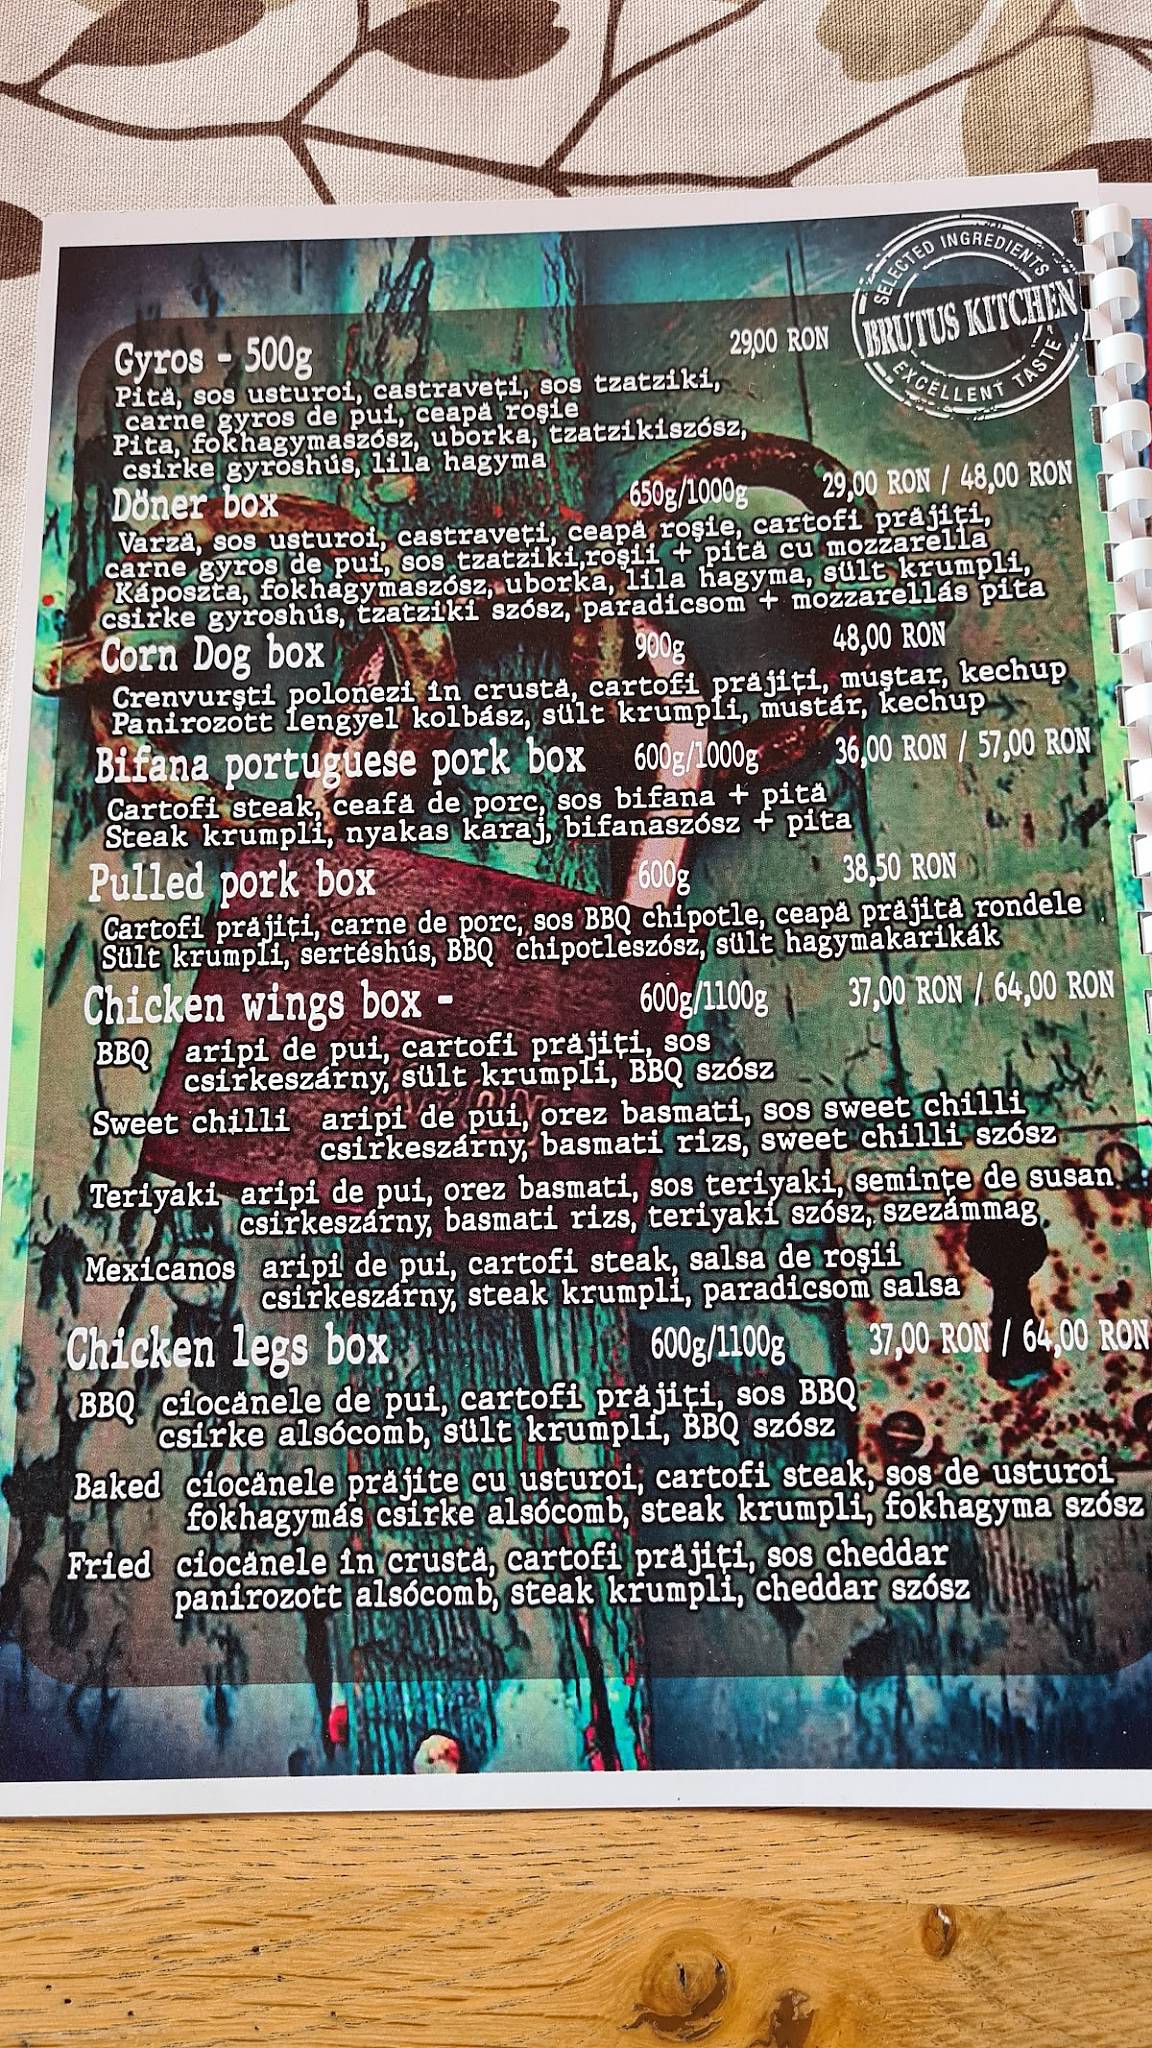 SELECTED INGREDIENTS
BRUTUS KITCHEN
EXCELLENT TASTE
Gyros - 500g 29,00 RON
Pită, sos usturoi, castraveți, sos tzatziki,
carne gyros de pui, ceapă roșie
Pita, fokhagymaszósz, uborka, tzatzikiszósz,
csirke gyroshús, lila hagyma
Döner box 650g/1000g 29,00 RON / 48,00 RON
Varză, sos usturoi, castraveți, ceapă roșie, cartofi prăjiți,
carne gyros de pui, sos tzatziki,roșii + pită cu mozzarella
Káposzta, fokhagymaszósz, uborka, lila hagyma, sült krumpli,
csirke gyroshús, tzatziki szósz, paradicsom + mozzarellás pita
Corn Dog box 900g 48,00 RON
Crenvurști polonezi în crustă, cartofi prăjiți, muștar, kechup
Panirozott lengyel kolbász, sült krumpli, mustár, kechup
Bifana portuguese pork box 600g/1000g 36,00 RON / 57,00 RON
Cartofi steak, ceafă de porc, sos bifana + pită
Steak krumpli, nyakas karaj, bifanaszósz + pita
Pulled pork box 600g 38,50 RON
Cartofi prăjiți, carne de porc, sos BBQ chipotle, ceapă prăjită rondele
Sült krumpli, sertéshús, BBQ chipotleszósz, sült hagymakarikák
Chicken wings box - 600g/1100g 37,00 RON / 64,00 RON
BBQ aripi de pui, cartofi prăjiți, sos
csirkeszárny, sült krumpli, BBQ szósz
Sweet chilli aripi de pui, orez basmati, sos sweet chilli
csirkeszárny, basmati rizs, sweet chilli szósz
Teriyaki aripi de pui, orez basmati, sos teriyaki, semințe de susan
csirkeszárny, basmati rizs, teriyaki szósz, szezámmag
Mexicanos aripi de pui, cartofi steak, salsa de roșii
csirkeszárny, steak krumpli, paradicsom salsa
Chicken legs box 600g/1100g 37,00 RON / 64,00 RON
BBQ ciocănele de pui, cartofi prăjiți, sos BBQ
csirke alsócomb, sült krumpli, BBQ szósz
Baked ciocănele prăjite cu usturoi, cartofi steak, sos de usturoi
fokhagymás csirke alsócomb, steak krumpli, fokhagyma szósz
Fried ciocănele în crustă, cartofi prăjiți, sos cheddar
panirozott alsócomb, steak krumpli, cheddar szósz